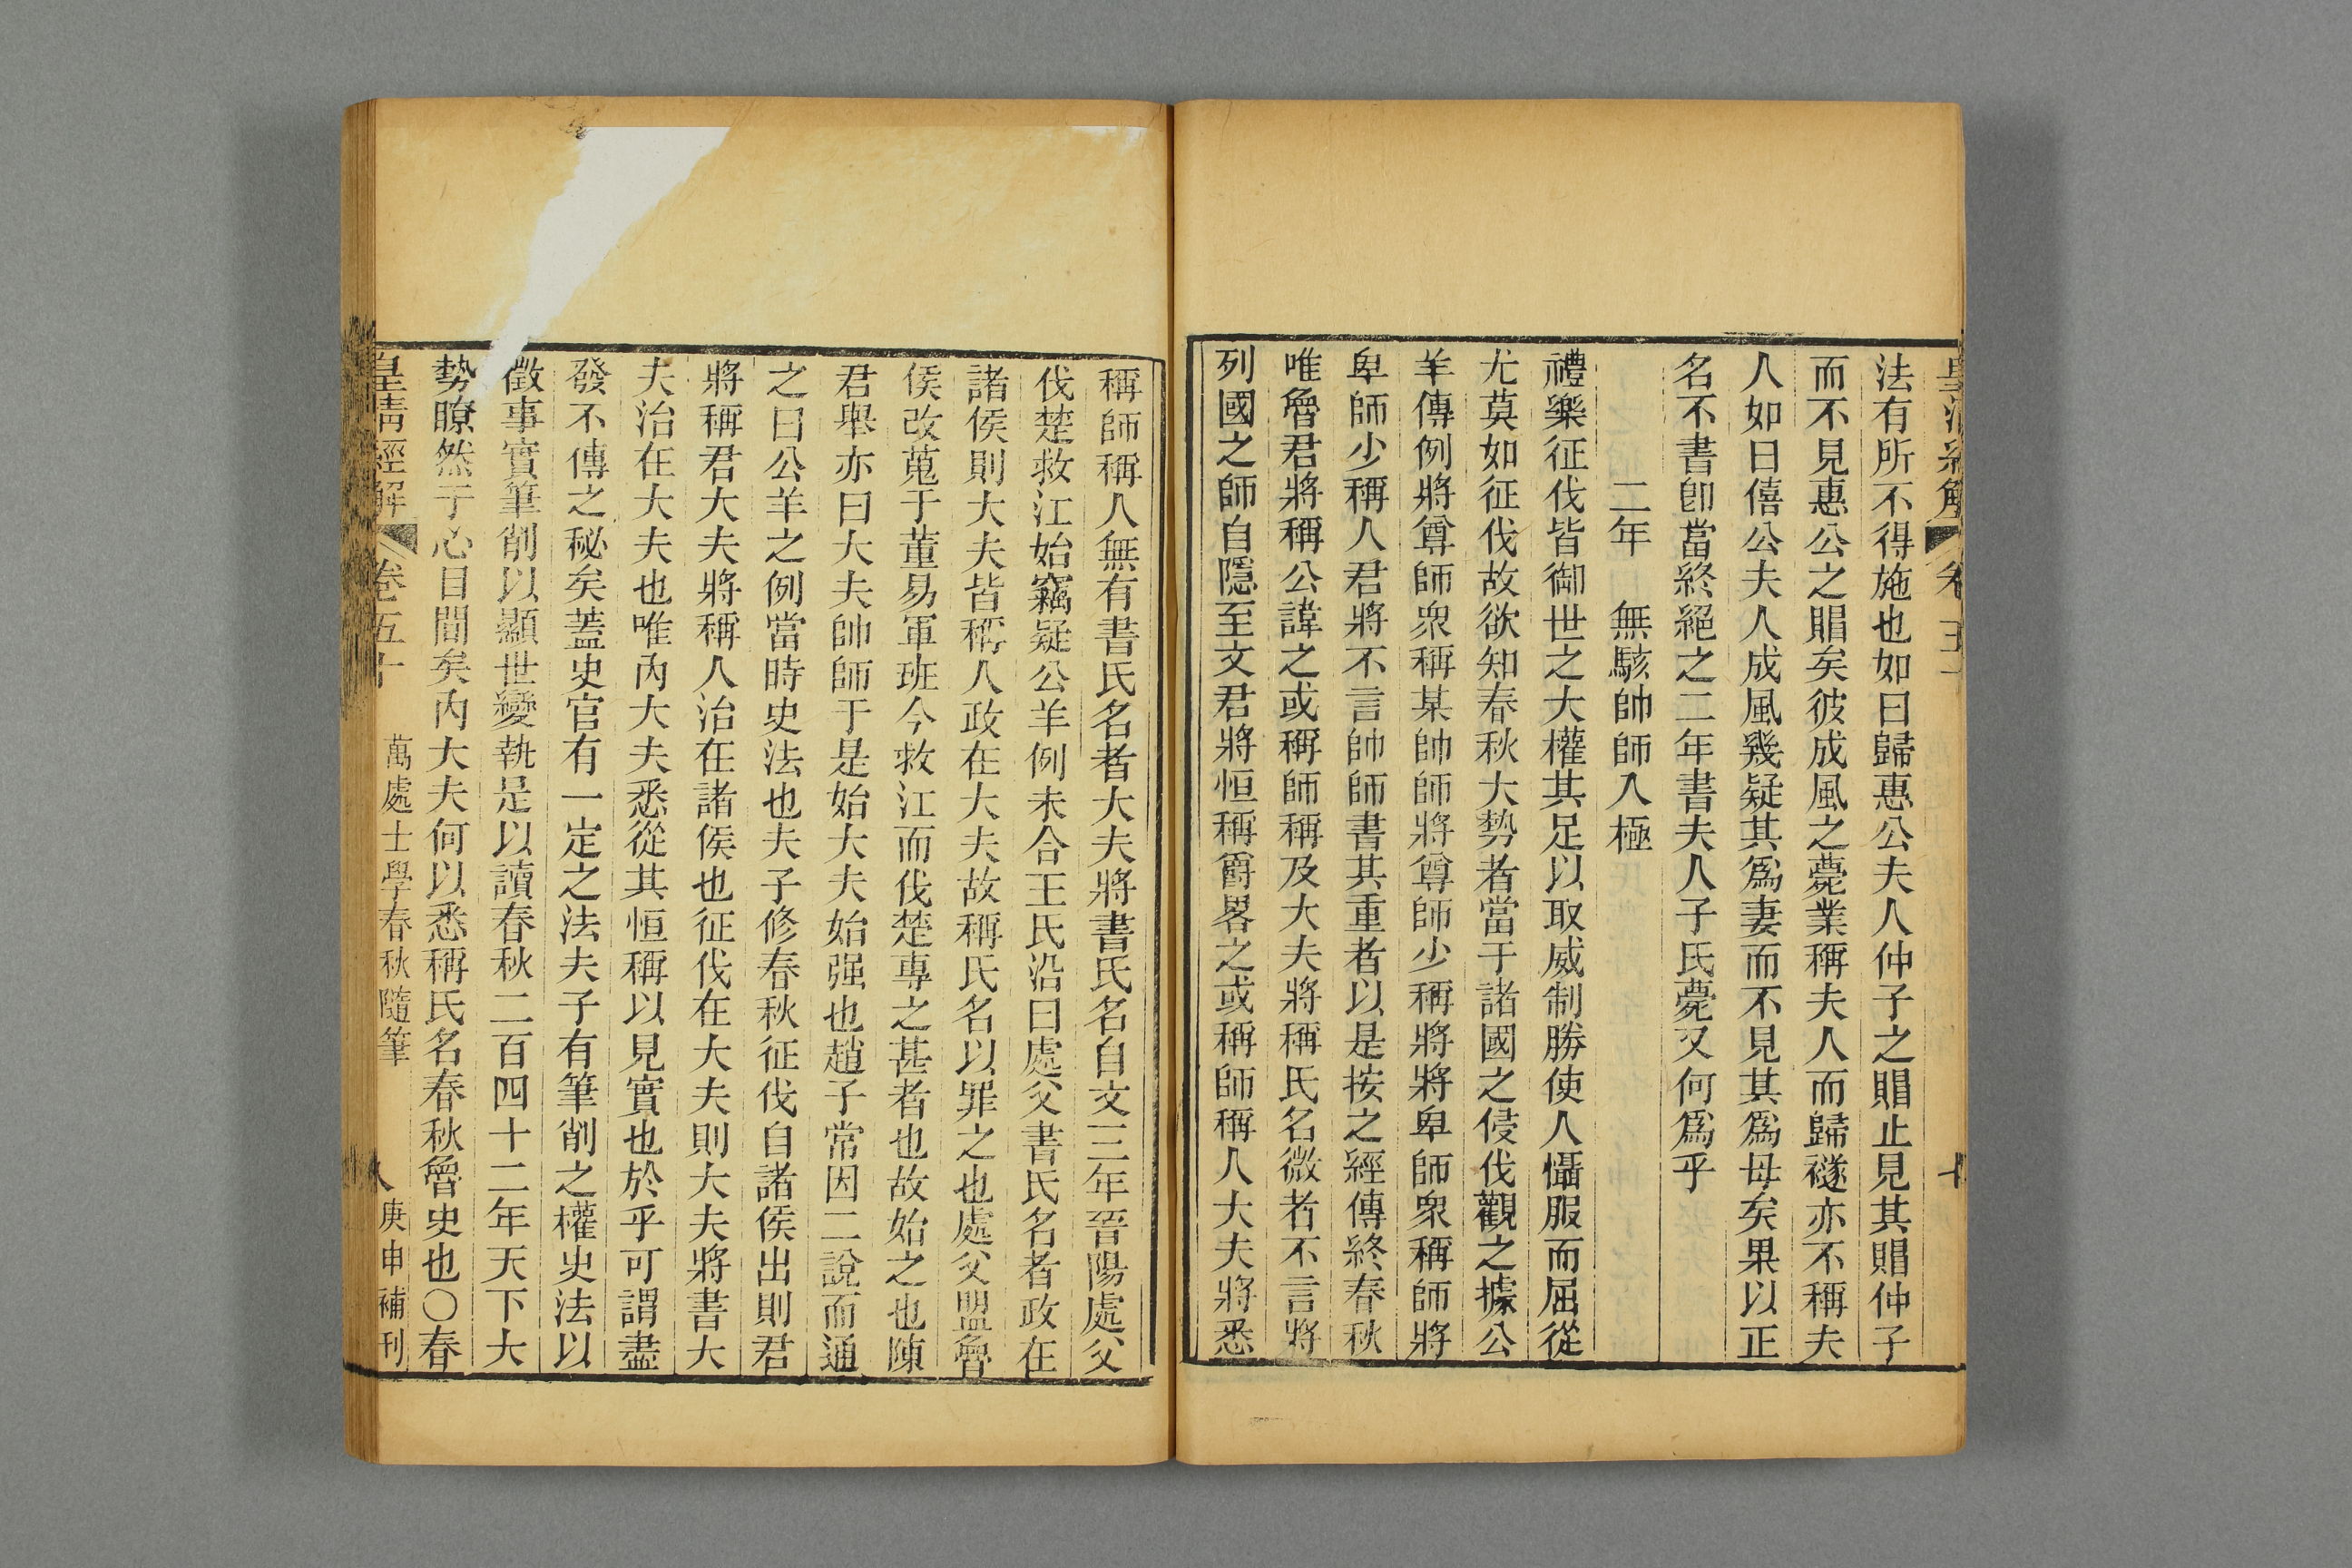 法有所不得施也如曰歸惠公夫人仲子之賵止見其賵仲子
而不見惠公之賵矣彼成風之薨業稱夫人而歸襚亦不稱夫
人如曰僖公夫人成風幾疑其爲妻而不見其爲母矣果以正
名不書卽當終絕之二年書夫人子氏薨又何爲乎
二年　無駭帥師入極
禮樂征伐皆御世之大權其足以取威制勝使人懾服而屈從
尤莫如征伐故欲知春秋大勢者當于諸國之侵伐觀之據公
羊傳例將尊師衆稱某帥師將尊師少稱將將卑師衆稱師將
卑師少稱人君將不言帥師書其重者以是按之經傳終春秋
唯魯君將稱公諱之或稱師稱及大夫將稱氏名微者不言將
列國之師自隱至文君將恒稱爵畧之或稱師稱人大夫將悉
稱師稱人無有書氏名者大夫將書氏名自文三年晉陽處父
伐楚救江始竊疑公羊例未合王氏沿曰處父書氏名者政在
諸侯則大夫皆稱人政在大夫故稱氏名以罪之也處父盟魯
侯改蒐于董易軍班今救江而伐楚專之甚者也故始之也陳
君舉亦曰大夫帥師于是始大夫始强也趙子常因二說而通
之曰公羊之例當時史法也夫子修春秋征伐自諸侯出則君
將稱君大夫將稱人治在諸侯也征伐在大夫則大夫將書大
夫治在大夫也唯內大夫悉從其恒稱以見實也於乎可謂盡
發不傳之秘矣蓋史官有一定之法夫子有筆削之權史法以
徵事實筆削以顯世變執是以讀春秋二百四十二年天下大
勢瞭然于心目間矣內大夫何以悉稱氏名春秋魯史也〇春
皇清經解　卷五十　萬處士學春秋隨筆　庚申補刊